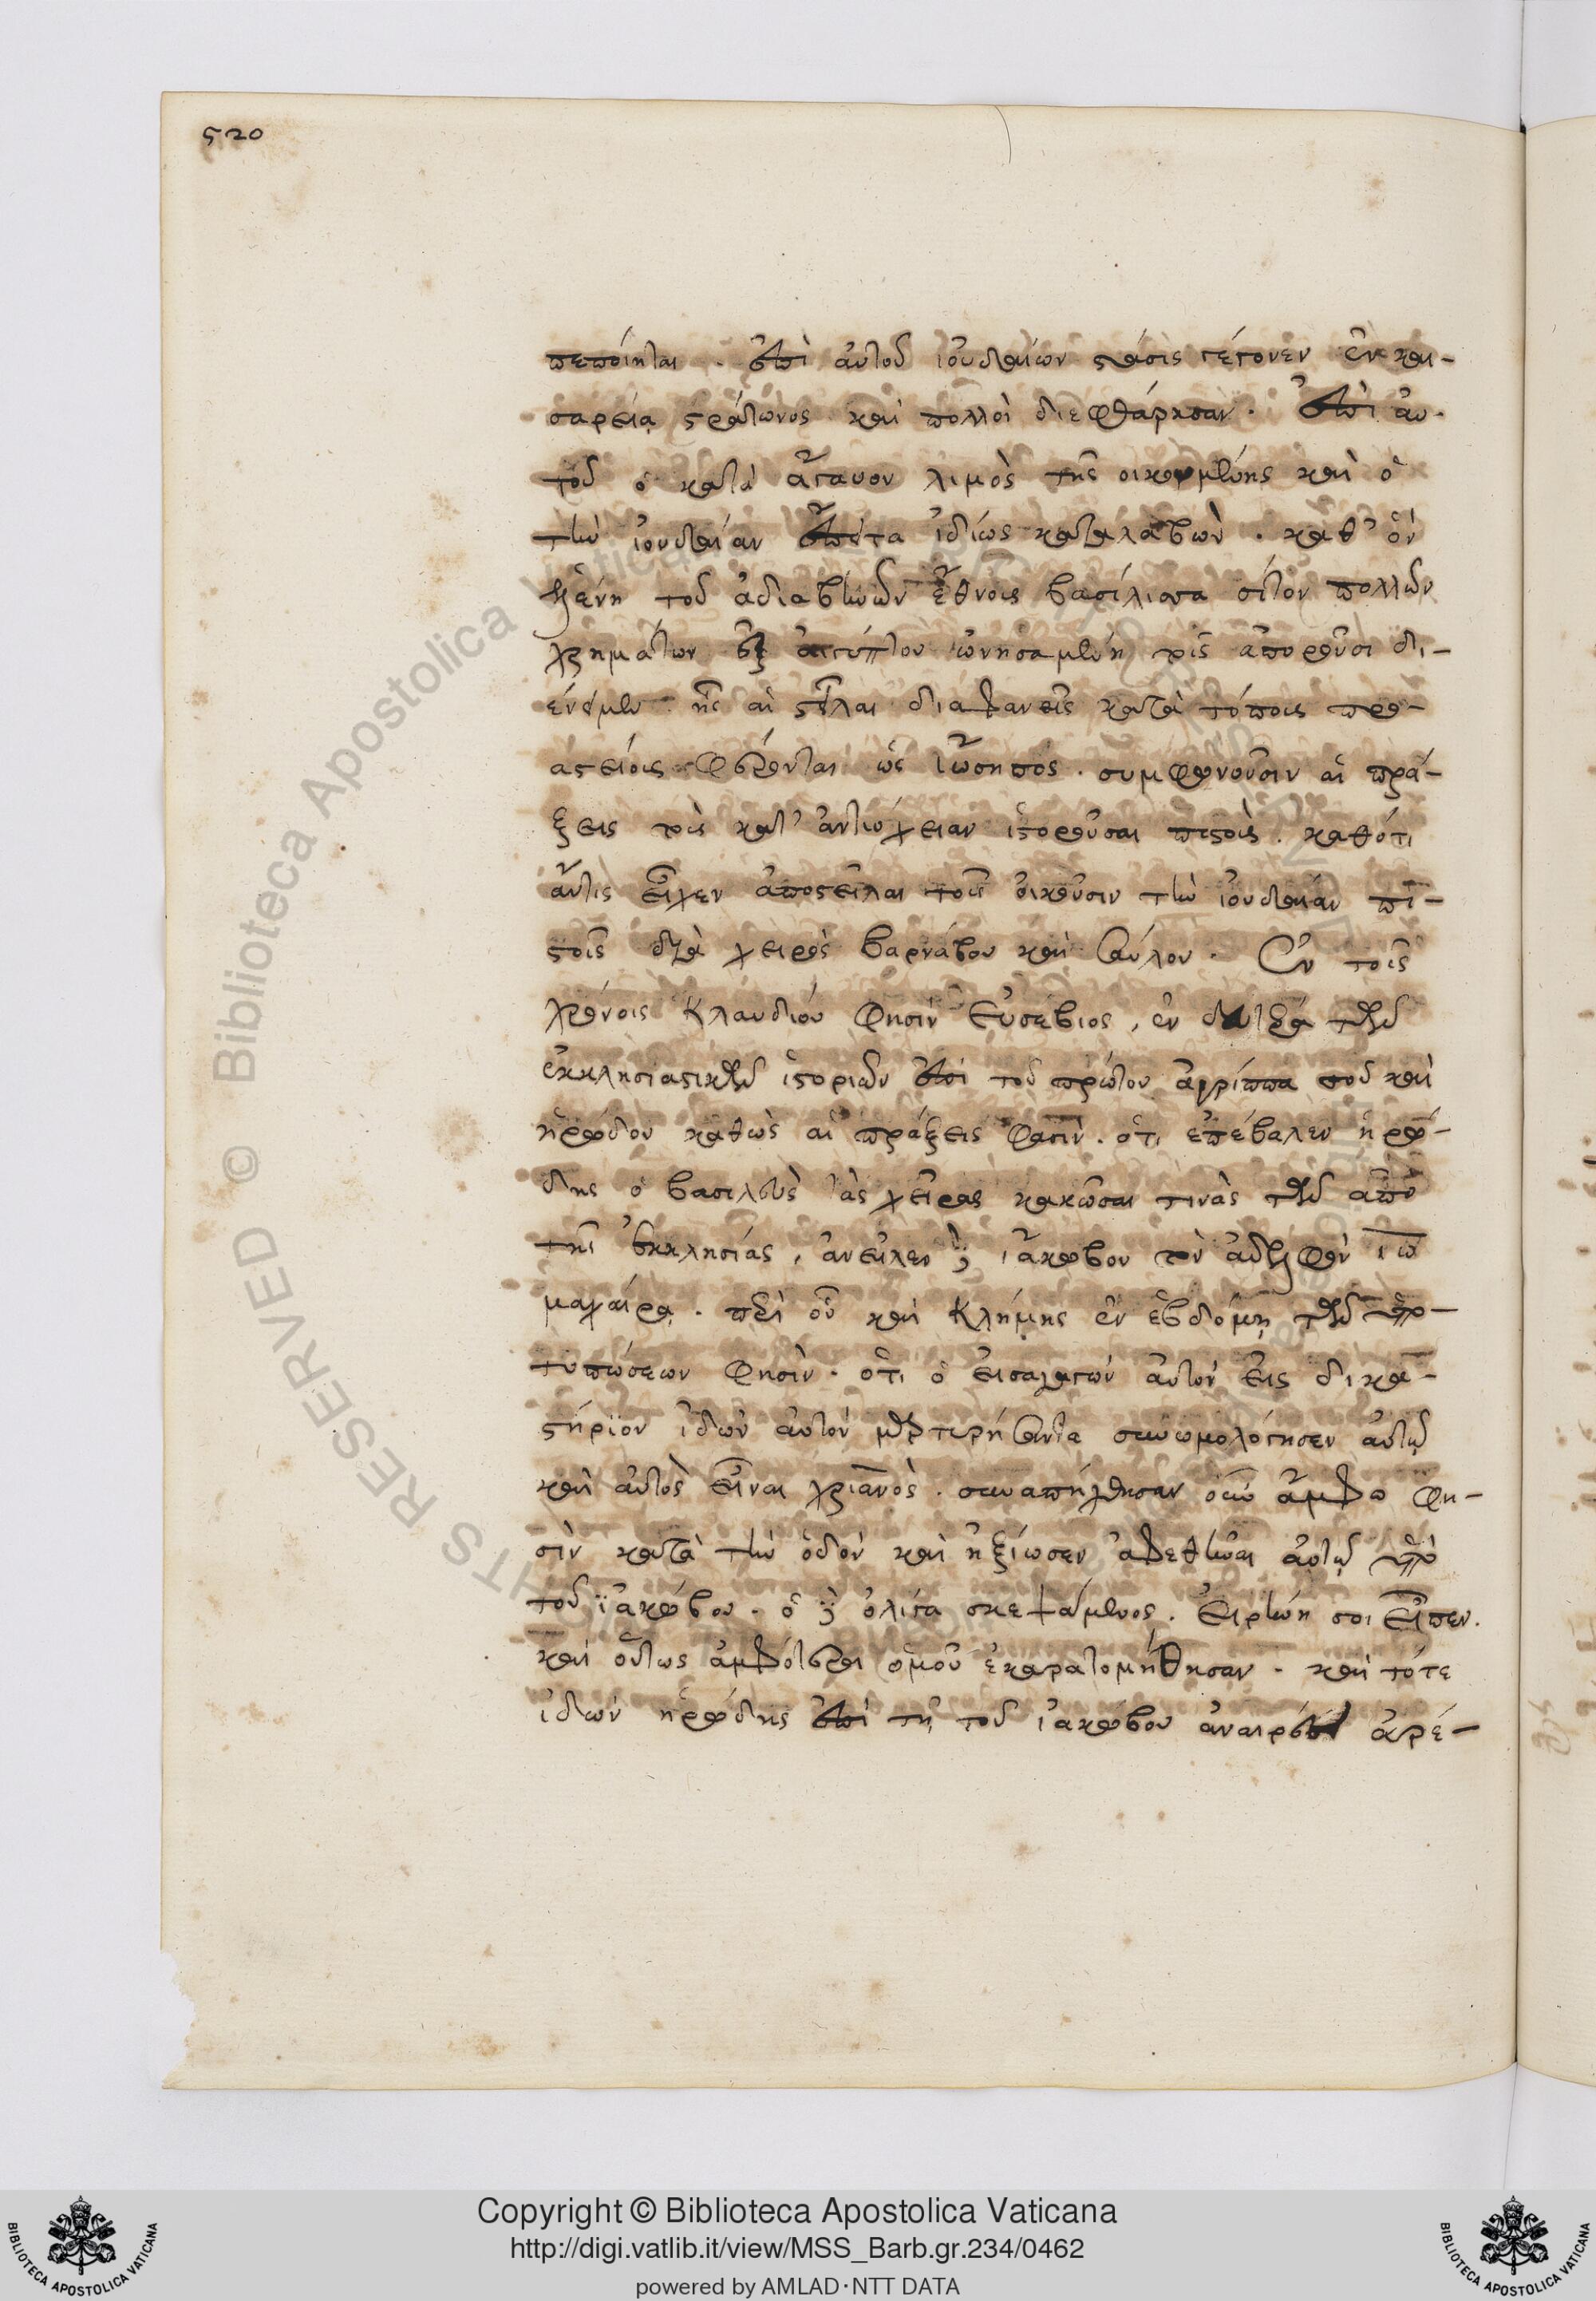 520
πεποίηται. ἐπὶ αὐτοῦ ἰουδαίων στάσις γέγονεν ἐν και-
σαρείᾳ στράτωνος καὶ πολλοὶ διεφθάρησαν. ἐπὶ αυ-
τοῦ ὁ κατὰ ἄγαυον λιμὸς τῆς οἰκουμένης καὶ ὁ
τὴν ἰουδαίαν ἔπειτα ἰδίως καταλαβὼν. καθ' ὃν
ἑλένη τοῦ ἀδιαβηνῶν ἔθνους βασίλισσα σῖτον πολλῶν
χρημάτων ἐξ αἰγύπτου ὠνησαμένη τοῖς ἀποροῦσι δι-
ένεμεν ἧς αἱ στῆλαι διαφανεῖς κατὰ τόπους προ-
αστείοις φέρονται ὡς ἰώσηπος. συμφωνοῦσιν αἱ πρά-
ξεις τοῖς κατ' ἀντιόχειαν ἱστοροῦσαι πιστοῖς. καθότι
αὖτις εἶχεν ἀποστεῖλαι τοῖς οἰκοῦσιν τὴν ἰουδαίαν πι-
στοῖς διὰ χειρὸς βαρνάβου καὶ σαύλου. Ἐν τοῖς
χρόνοις Κλαυδίου φησὶν Εὐσέβιος, ἐν δευτέρᾳ τῶν
ἐκκλησιαστικῶν ἱστοριῶν ἐπὶ τοῦ πρώτου ἀγρίππα τοῦ καὶ
ἡρώδου καθὼς αἱ πράξεις φασὶν. ὅτι ἐπέβαλεν ἡρώ-
δης ὁ βασιλεὺς τὰς χεῖρας κακῶσαι τινὰς τῶν ἀπὸ
τῆς ἐκκλησίας, ἀνεῖλεν δὲ ἰάκωβον τὸν ἀδελφὸν ιω
μαχαίρᾳ. περὶ οὗ καὶ Κλήμης ἐν ἑβδόμῃ τῶν ὑπο-
τυπώσεων φησὶν. ὅτι ὁ εἰσαγαγών αὐτὸν εἰς δικα-
στήριον ἰδὼν αὐτὸν μαρτυρήσαντα συνωμολόγησεν αὐτῷ
καὶ αὐτὸς εἶναι χριανὸς. συναπήχθησαν οὖν ἄμφω φη-
σὶν κατὰ τὴν ὁδὸν καὶ ἠξίωσεν ἀφεθῆναι αὐτῷ ὑπὸ
τοῦ ἰακώβου. ὁ δὲ ὀλίγα σκεψάμενος. Εἰρήνη σοι εἶπεν.
καὶ οὕτως ἀμφότεροι ὁμοῦ ἐκαρατομήθησαν. καὶ τότε
ἰδὼν ἡρώδης ἐπὶ τῇ τοῦ ἰακώβου ἀναιρέσει ἀρέ-
Copyright © Biblioteca Apostolica Vaticana
http://digi.vatlib.it/view/MSS_Barb.gr.234/0462
powered by AMLAD·NTT DATA